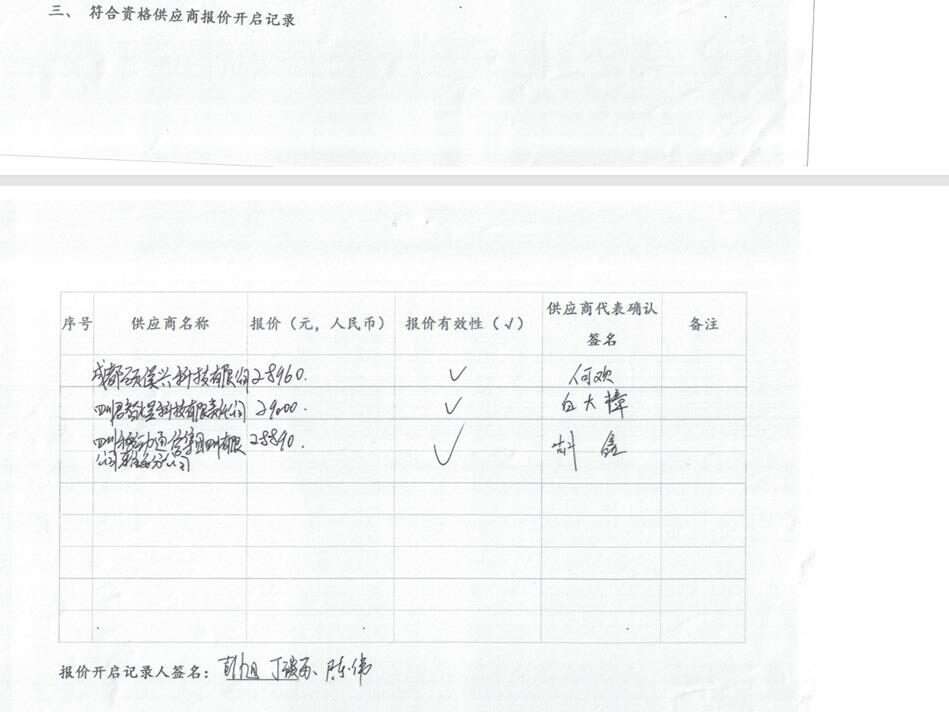 三、 符合资格供应商报价开启记录
序号 供应商名称 报价（元，人民币） 报价有效性（√） 供应商代表确认签名 备注
成都 保兴科技有限公司 28960. √ 何欢
四川 科技有限责任公司 29000. √ 白大樟
四川移动通信集团四川有限 28890. √ 胡鑫
公司 分公司
报价开启记录人签名： 彭旭 丁 陈伟